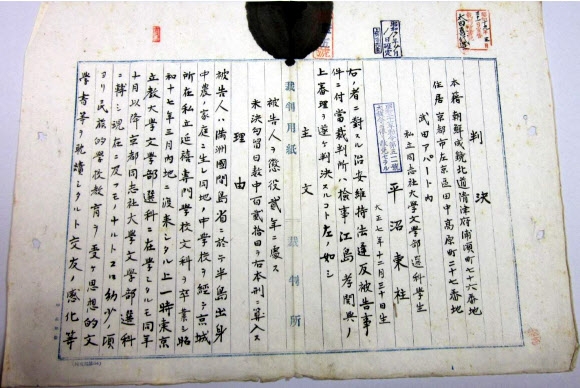 判決
本籍 朝鮮咸鏡北道清津府浦項町七十六番地
住居 京都市左京区田中高原町二十七番地
武田アパート内
私立同志社大学文学部選科学生
平沼東柱
大正七年十二月三十日生
右ノ者ニ對スル治安維持法違反被告事
件ニ付當裁判所ハ檢事江島孝関與ノ
上審理ヲ遂ケ判決スルコト左ノ如シ
主文
裁判用紙 裁判所
被告人ヲ懲役貳年ニ處ス
未決勾留日数中百貳拾日ヲ右本刑ニ算入ス
理由
被告人ハ満洲國間島省ニ於テ半島出身
中農ノ家庭ニ生レ同地ノ中学校ヲ経テ京城
所在私立延禧専門学校文科ヲ卒業シ昭
和十七年三月内地ニ渡来シタル上一時東京
立教大学文学部選科ニ在学シタルモ同年
十月以降京都同志社大学文学部選科
ニ轉シ現在ニ及フモノナルトコロ幼少ノ頃
ヨリ民族的学校教育ヲ受ケ思想的文
学書等ヲ耽讀シタルト交友ノ感化等